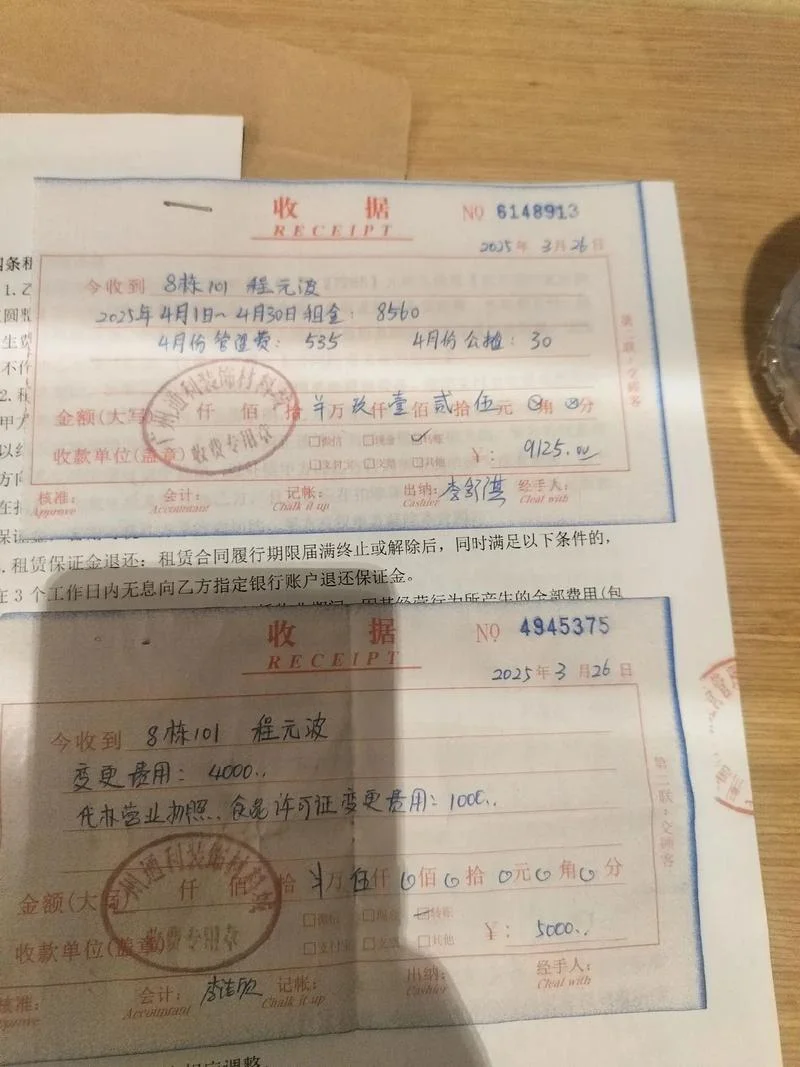 收 据
RECEIPT
№ 6148913
2025年 3月26日
今收到 8栋101 程元波
2025年4月1日~4月30日租金: 8560
4月份管理费: 535 4月份公摊: 30
金额(大写) 仟 佰 拾 万 玖仟壹佰贰拾伍元 角 分
收款单位(盖章) 微信 现金 转帐
支付宝 支票 其他 ¥: 9125.00
广州通利装饰材料
收费专用章
核准: 会计: 记帐: 出纳: 经手人:
Approve Accountant Chalk it up Cashier Cleal with
第二联:交顾客
四条租
1.乙
生费
不作
2.租
甲方
方向
在拒
保证
.租赁保证金退还:租赁合同履行期限届满终止或解除后,同时满足以下条件的,
在 3 个工作日内无息向乙方指定银行账户退还保证金。
收 据
RECEIPT
№ 4945375
2025年3月26日
今收到 8栋101 程元波
变更费用: 4000..
代办营业执照..食品许可证变更费用: 1000..
金额(大写) 仟 佰 拾 万伍仟0佰0拾0元0角0分
收款单位(盖章) 微信 现金 转帐
支付宝 支票 其他 ¥: 5000..
广州通利装饰材料
收费专用章
核准: 会计: 记帐: 出纳: 经手人:
Approve Accountant Chalk it up Cashier Cleal with
第二联:交顾客